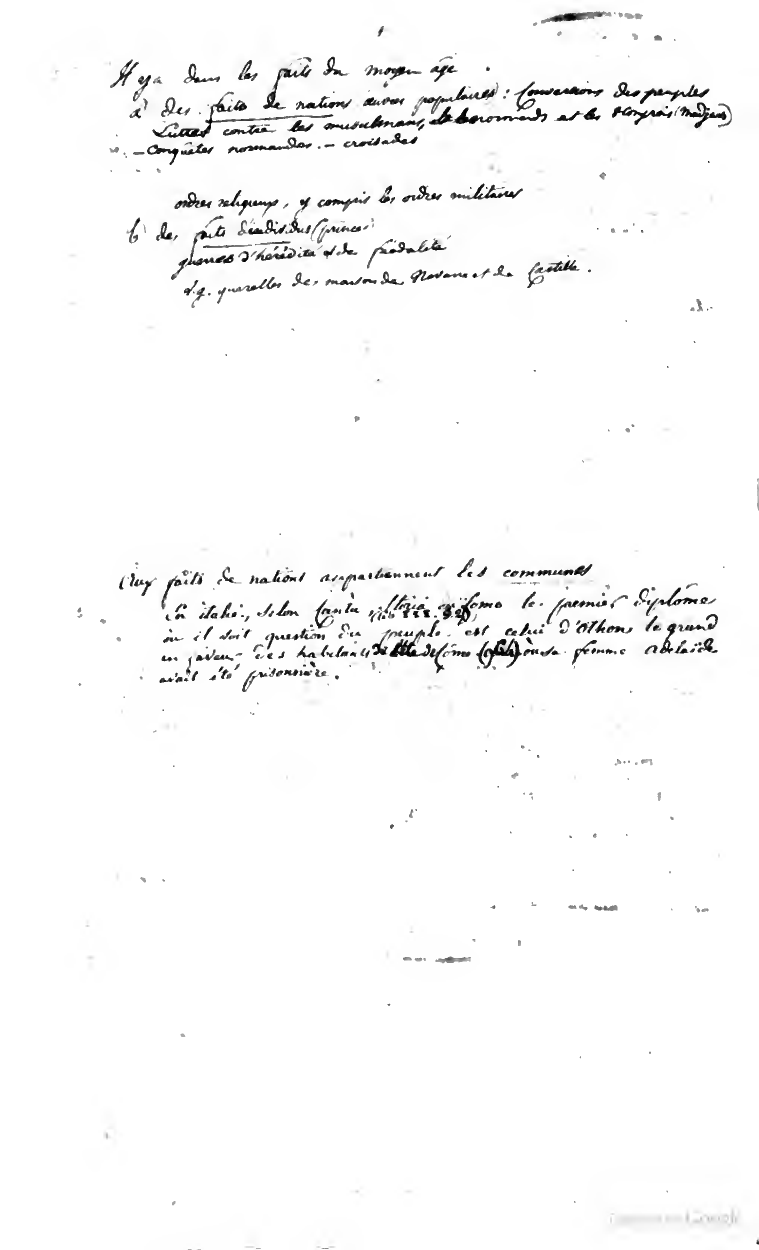 Il y a dans les faits du moyen âge.
a) des faits de nations œuvres populaires: Conversions des peuples
Luttes contre les musulmans, les normands et les Hongrois (Madjars)
– Conquêtes normandes. – croisades
ordres religieux, y compris les ordres militaires
b) des faits d'individus (princes)
guerres d'hérédité et de féodalité
v.g. querelles des maisons de Navarre et de Castille.
Aux faits de nations appartiennent les communes
En italie, selon Cantù, Storia di Como le premier diplôme
où il soit question du peuple est celui d'Othon le grand
en faveur des habitants de Côme où sa femme Adelaïde
avait été prisonnière.